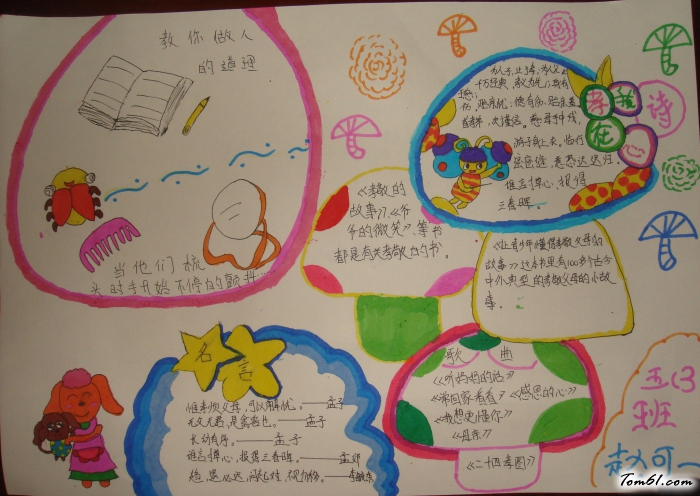 教你做人
的道理
当他们梳
头时手开始不停的颤抖
《孝敬的
故事》,《爷
爷的微笑》,等书
都是有关孝敬的书。
孝在我心
诗
游子身上衣,临行
密密缝,意恐迟迟归。
谁言寸草心,报得
三春晖。
《让青少年懂得孝敬父母的
故事》这本书里有100多个古今
中外典型的孝敬父母的小故
事。
名言
惟孝顺父母,可以解忧。——孟子
长幼有序。——孟子
谁言寸草心,报得三春晖。——孟郊
歌曲
《听妈妈的话》
《常回家看看》《感恩的心》
《我想更懂你》
《丹亲》
《二十四孝图》
五(3)
班
赵可一
Tom61.com